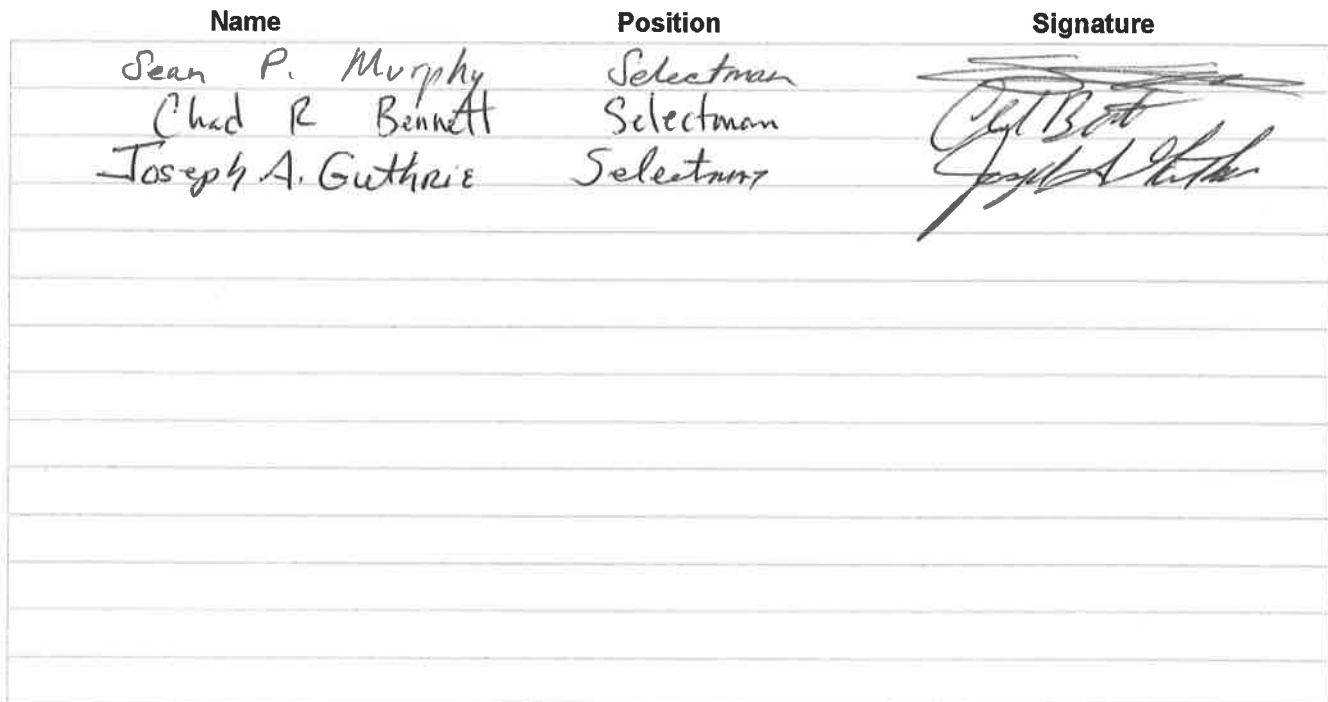 Name Position Signature
Sean P. Murphy Selectman
Chad R Bennett Selectman
Joseph A. Guthrie Selectman